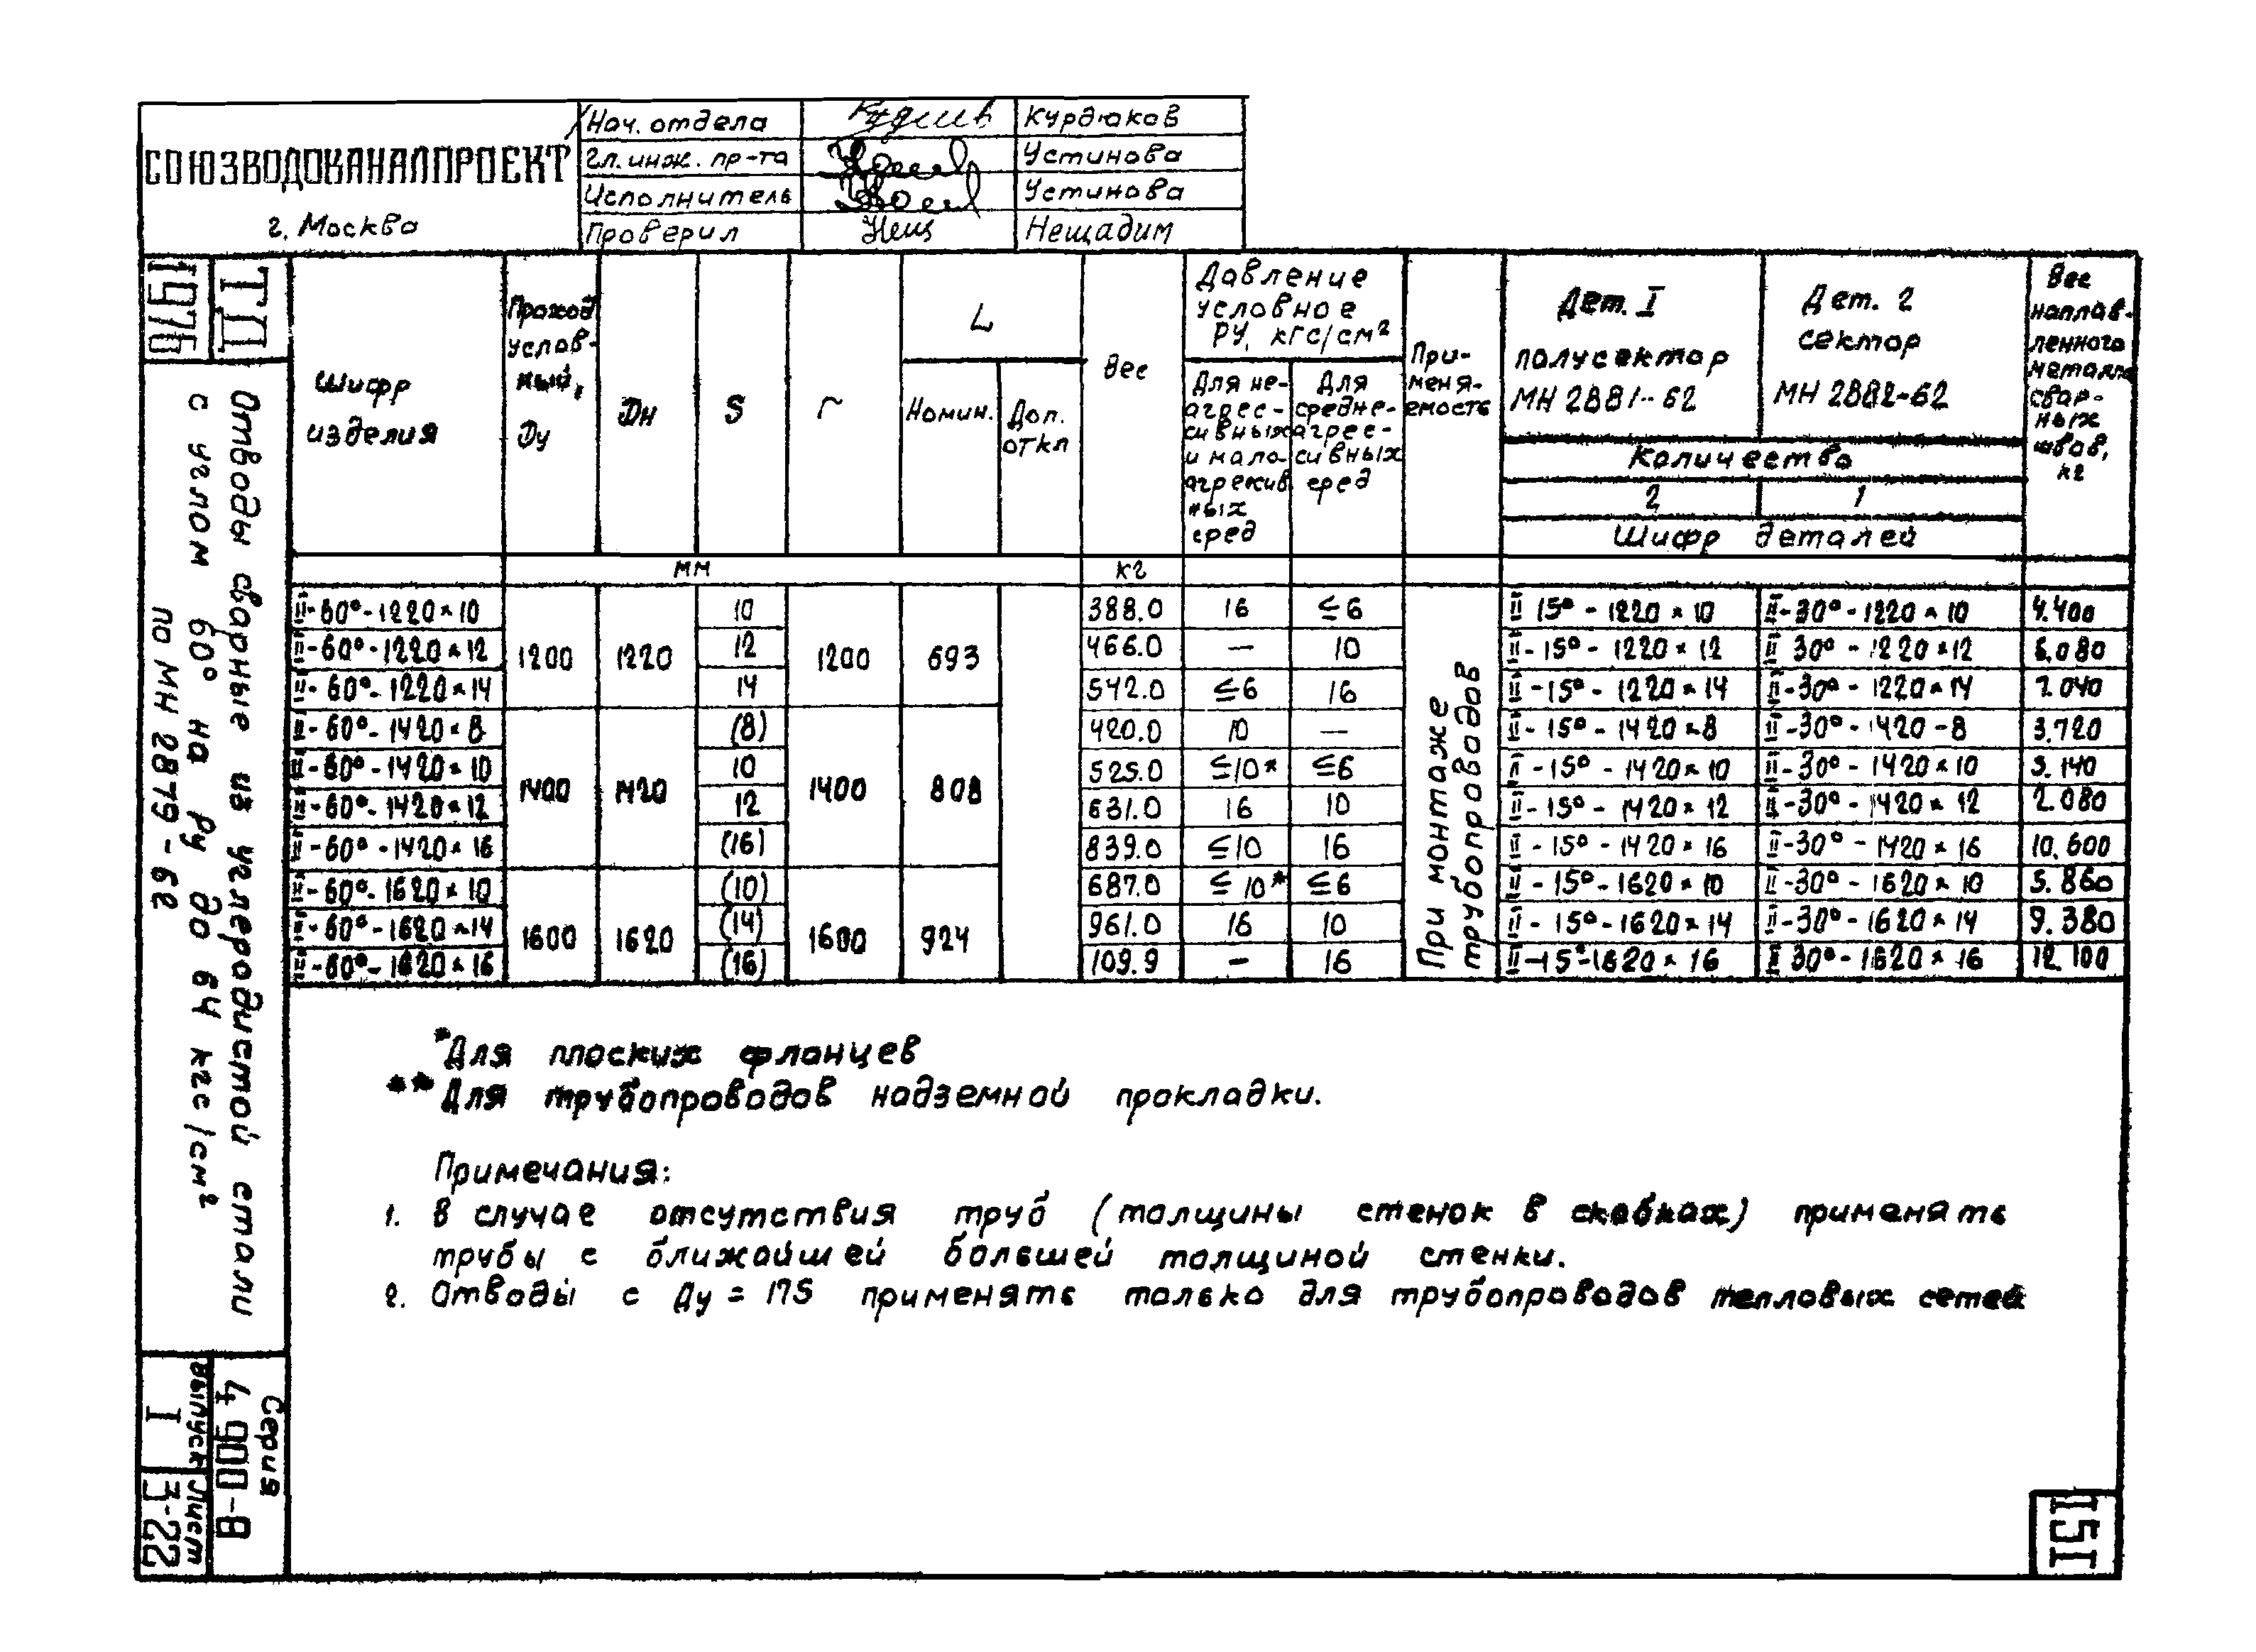 СОЮЗВОДОКАНАЛПРОЕКТ
г. Москва
Нач. отдела Курдюков
Гл. инж. пр-та Устинова
Исполнитель Устинова
Проверил Нещ Нещадим
1976
ТД
Отводы сварные из углеродистой стали
с углом 60° на Ру до 64 кгс/см²
по МН 2879-62
Серия
4.900-8
Выпуск
I
Лист
3-22
Шифр
изделия
Проход
услов-
ный,
Ду
Дн
S
r
L
Номин.
Доп.
откл
Вес
Давление
условное
РУ, кгс/см²
Для не-
агрес-
сивных
и мало-
агрессив
ных
сред
Для
средне-
агрес-
сивных
сред
При-
меня-
емость
Дет. I
полусектор
МН 2881-62
Дет. 2
сектор
МН 2882-62
Количество
2 1
Шифр деталей
Вес
наплав-
ленного
металла
свар-
ных
швов,
кг
мм кг
II-60°-1220×10 10 388.0 16 ≤6 II 15°-1220×10 II-30°-1220×10 4.400
II-60°-1220×12 1200 1220 12 1200 693 466.0 — 10 II-15°-1220×12 II 30°-1220×12 6.080
II-60°-1220×14 14 542.0 ≤6 16 II-15°-1220×14 II-30°-1220×14 7.040
II-60°-1420×8 (8) 420.0 10 — II-15°-1420×8 II-30°-1420-8 3.720
II-60°-1420×10 1400 1420 10 1400 808 525.0 ≤10* ≤6 II-15°-1420×10 II-30°-1420×10 5.140
II-60°-1420×12 12 631.0 16 10 II-15°-1420×12 II-30°-1420×12 2.080
II-60°-1420×16 (16) 839.0 ≤10 16 II-15°-1420×16 II-30°-1420×16 10.600
II-60°-1620×10 (10) 687.0 ≤10* ≤6 II-15°-1620×10 II-30°-1620×10 5.860
II-60°-1620×14 1600 1620 (14) 1600 924 961.0 16 10 II-15°-1620×14 II-30°-1620×14 9.380
II-60°-1620×16 (16) 109.9 — 16 II-15°-1620×16 II 30°-1620×16 12.100
При монтаже
трубопроводов
*Для плоских фланцев
**Для трубопроводов надземной прокладки.
Примечания:
1. В случае отсутствия труб (толщины стенок в скобках) применять
трубы с ближайшей большей толщиной стенки.
2. Отводы с Ду = 175 применять только для трубопроводов тепловых сетей
151